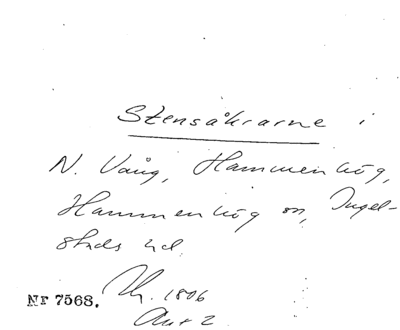 Stensåkrarne i
N. Vång, Hammenhög,
Hammenhög sn, Ingel-
stads hd.
Nr 7568. 1806